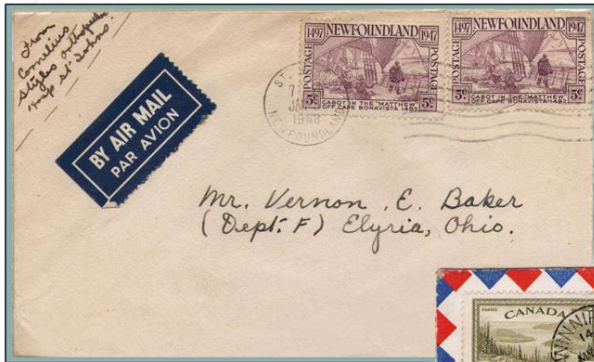 From
Cornelius
Styles Orthopedic
Hosp St Johns
BY AIR MAIL
PAR AVION
1497 NEWFOUNDLAND 1947
POSTAGE POSTAGE
5¢ CABOT IN THE "MATTHEW" 5¢
OFF CAPE BONAVISTA 1497
1497 NEWFOUNDLAND 1947
POSTAGE POSTAGE
5¢ CABOT IN THE "MATTHEW" 5¢
OFF CAPE BONAVISTA 1497
ST.
1948
NEWFOUNDLAND
Mr. Vernon E. Baker
(Dept. F) Elyria, Ohio.
CANADA
14